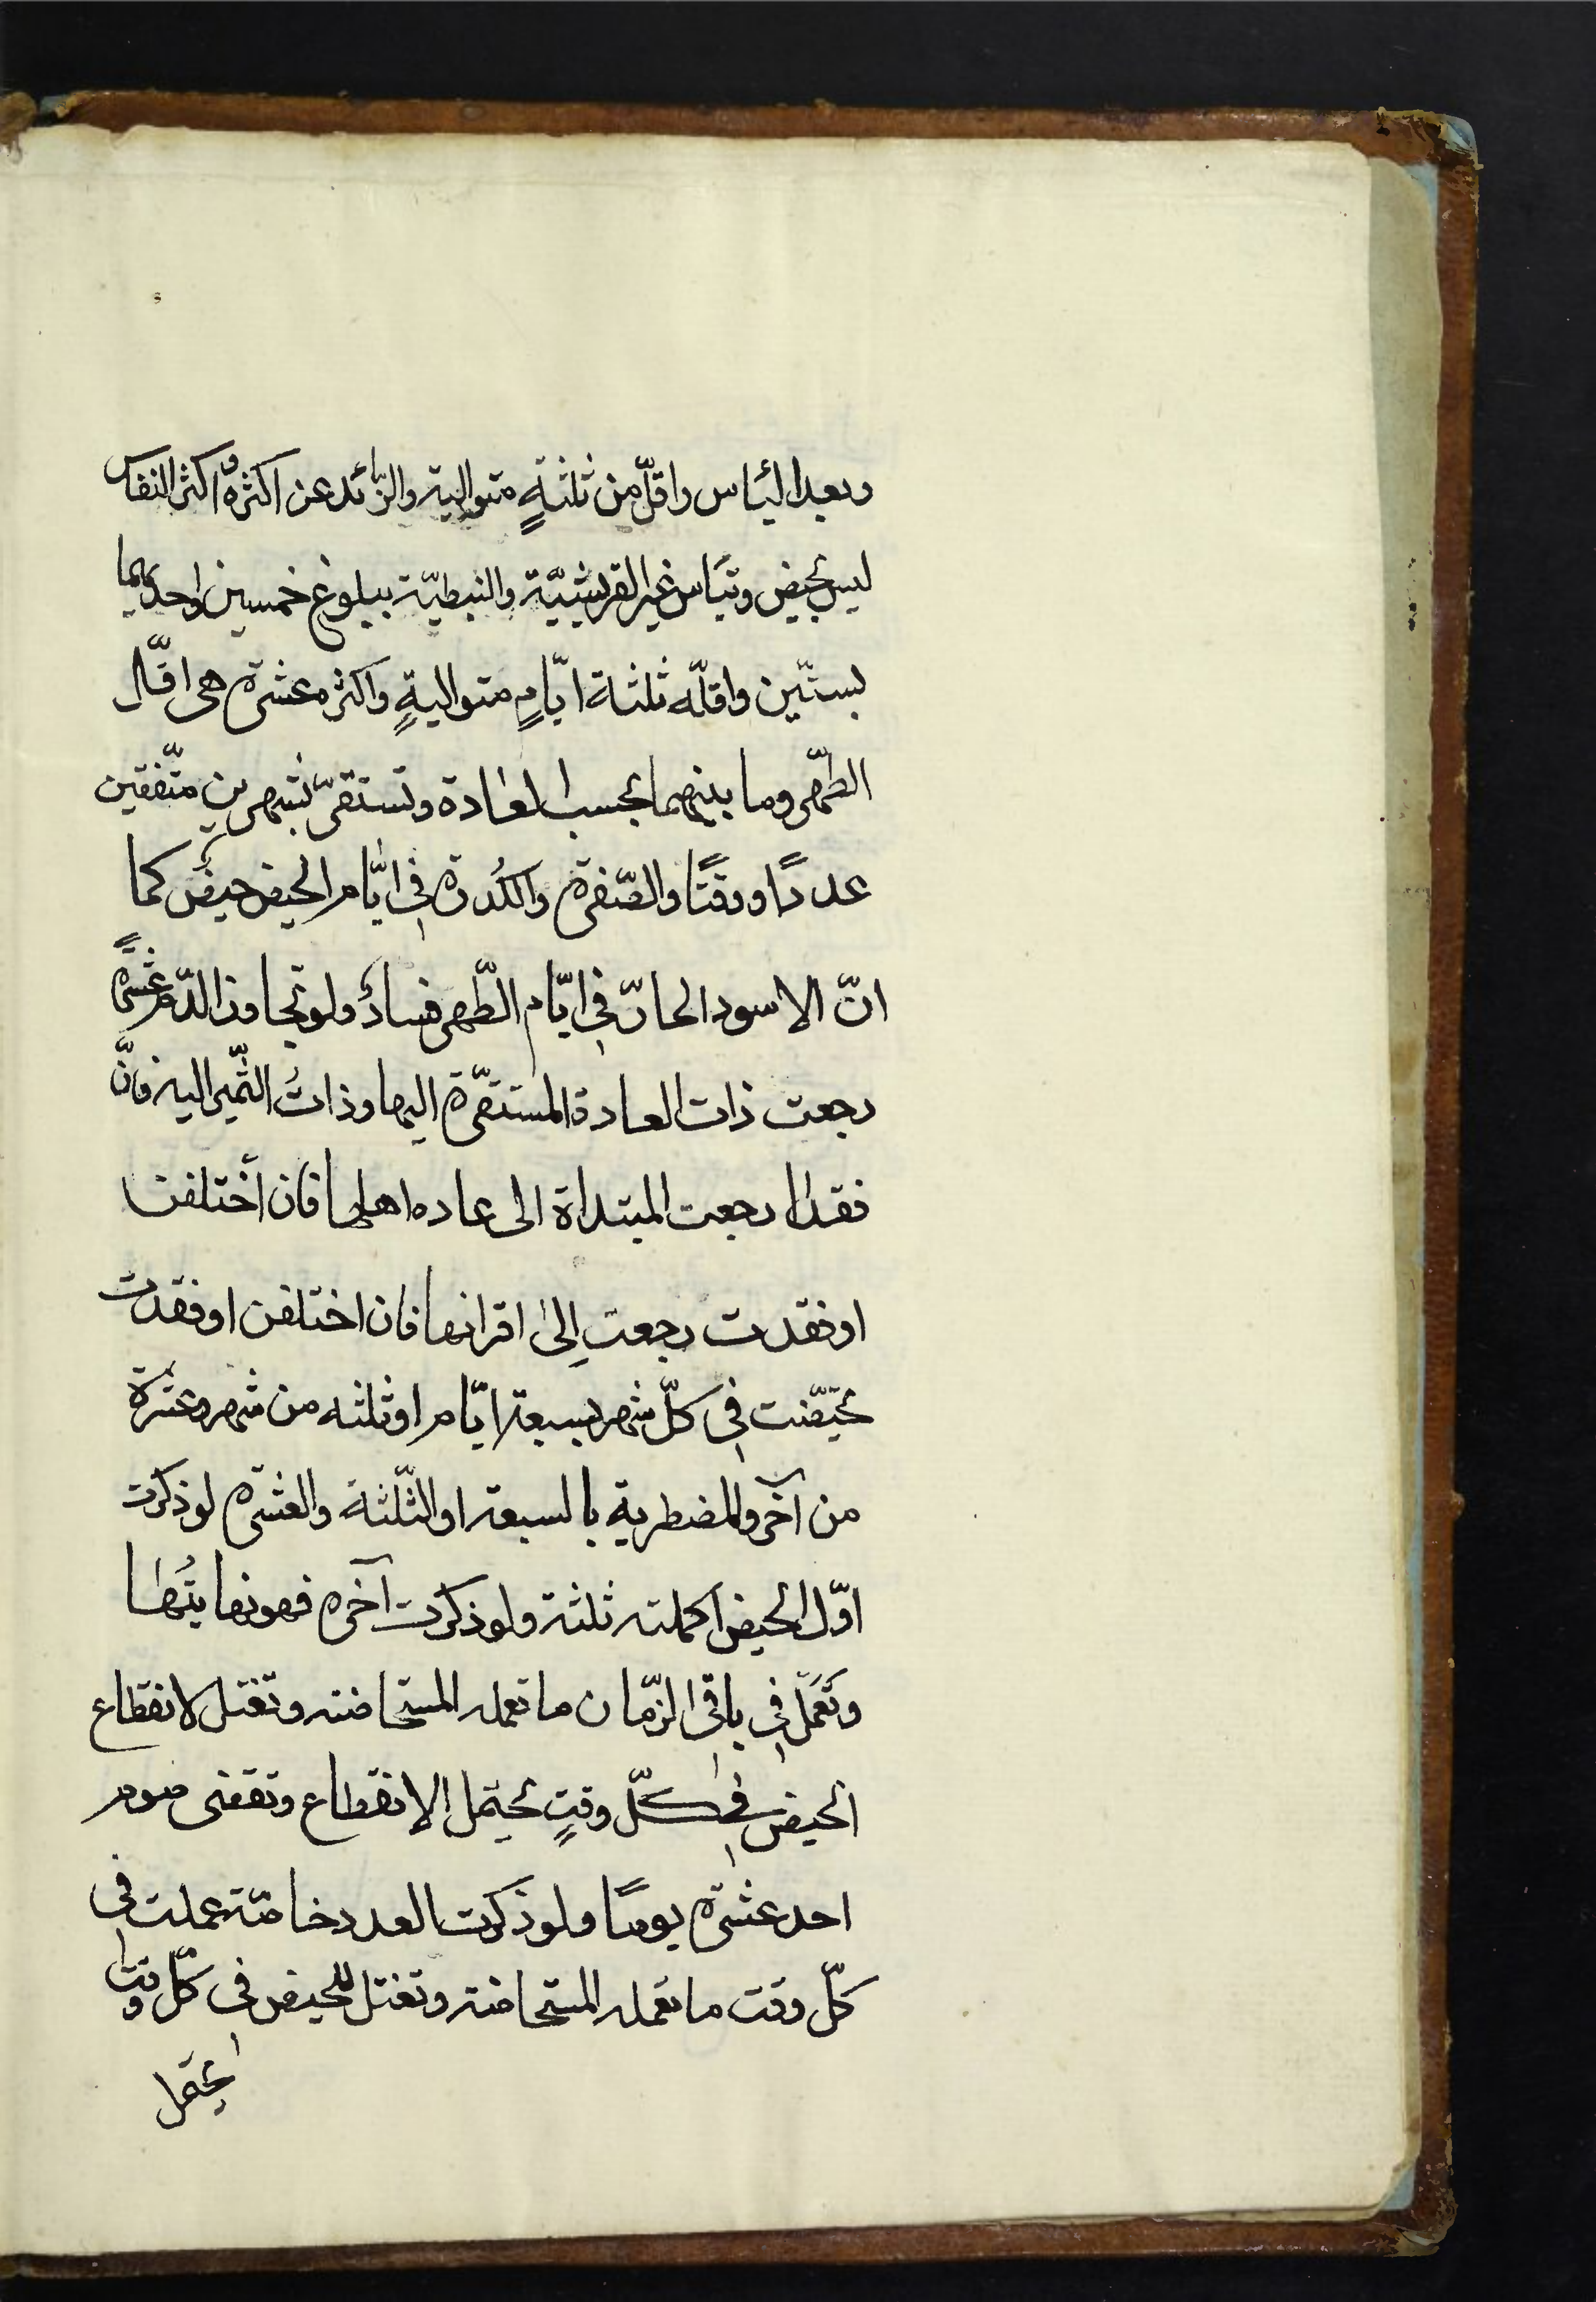 وبعد الیٔاس واقلّ من ثلثةٍ متوالیة والزّائد عن اكثره و اكثر النفاس
ليس بحيض وتئاس غير القرشيّة والنبطيّة ببلوغ خمسين واحديهما
بستّين واقلّه ثلثة ايّامٍ متواليةٍ واكثره عشرة هى اقلّ
الطّهر وما بينهما بحسب العادة وتستقرّ بشهرين متّفقين
عددًا ووقتًا والصّفرة والكُدرة فى ايّام الحيض حيضٌ كما
انّ الاسود الحارّ فى ايّام الطّهر فسادٌ ولو تجاوز الدّم عشرةً
رجعت ذات العادة المستقرّة اليها وذاتُ التّميز اليه فانّ
فقدا رجعت المبتداة الى عاده اهلها فان اختلفن
او فقدت رجعت إلىٰ اقرانها فان اختلفن او فقدت
تحيّضت فى كلّ شهر بسبعة ايّام او ثلثه من شهر وعشرة
من آخر والمضطربة بالسبعة او الثّلثة والعشرة لو ذكرت
اوّل الحيض اكملته ثلثة ولو ذكرت آخره فهو نهايتُها
وتَعمَل فى باقى الزّمان ما تعمله المستحاضة وتغتسل لانقطاع
الحيض فى كلّ وقتٍ يحتمل الإنقطاع وتقضى صوم
احد عشرة يومًا ولو ذكرت العدد خاصّة عملت فى
كلّ وقت ما تعمله المستحاضة وتغتسل للحيض فى كلّ وقت
يحتمل